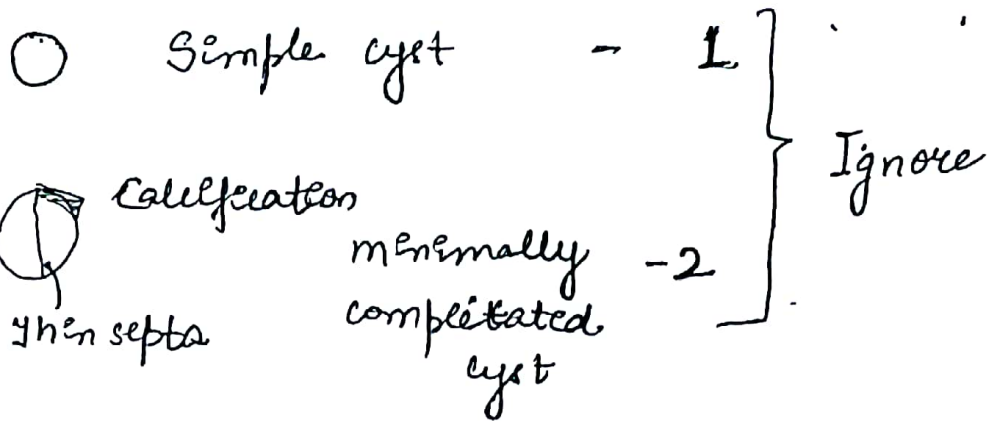 Simple cyst - 1
Ignore
Calcification
minimally -2
complicated
Thin septa
cyst